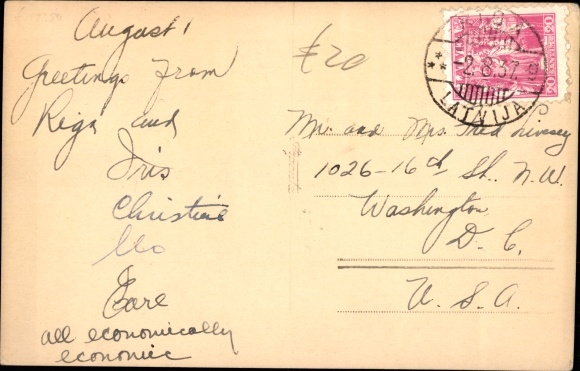 August 1
Greetings from
Riga and
Iris
Christine
Eare
all economically
economic
£20
2.8.37
LATVIJA
Mr. and Mrs. Fred Livesey
1026-16th St. N.W.
Washington
D. C.
U. S. A.